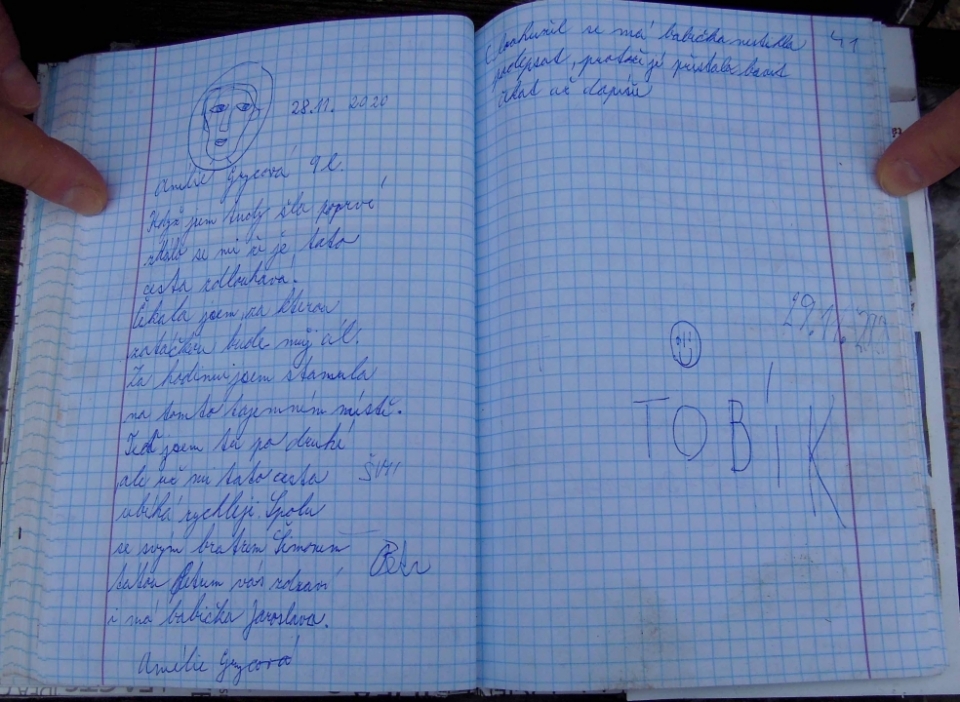 28.11. 2020
Amélie Grycová 9 l.
Když jsem tudy šla poprvé
zdálo se mi že je tato
cesta zdlouhavá.
Čekala jsem, za kterou
zatáčkou bude můj cíl.
Za hodinu jsem stanula
na tomto tajemném místě.
Teď jsem tu po druhé
ale už mi tato cesta
ubíhá rychleji. Spolu
se svým bratrem Šimonem
tatou Petrem vás zdraví
i má babička Jaroslava.
Amélie Grycová
ŠIMI
Petr
se má babička nestihla
podepsat, protože jí přestala bavit
čekat až dopíšu
41
29.11.
TOBÍK